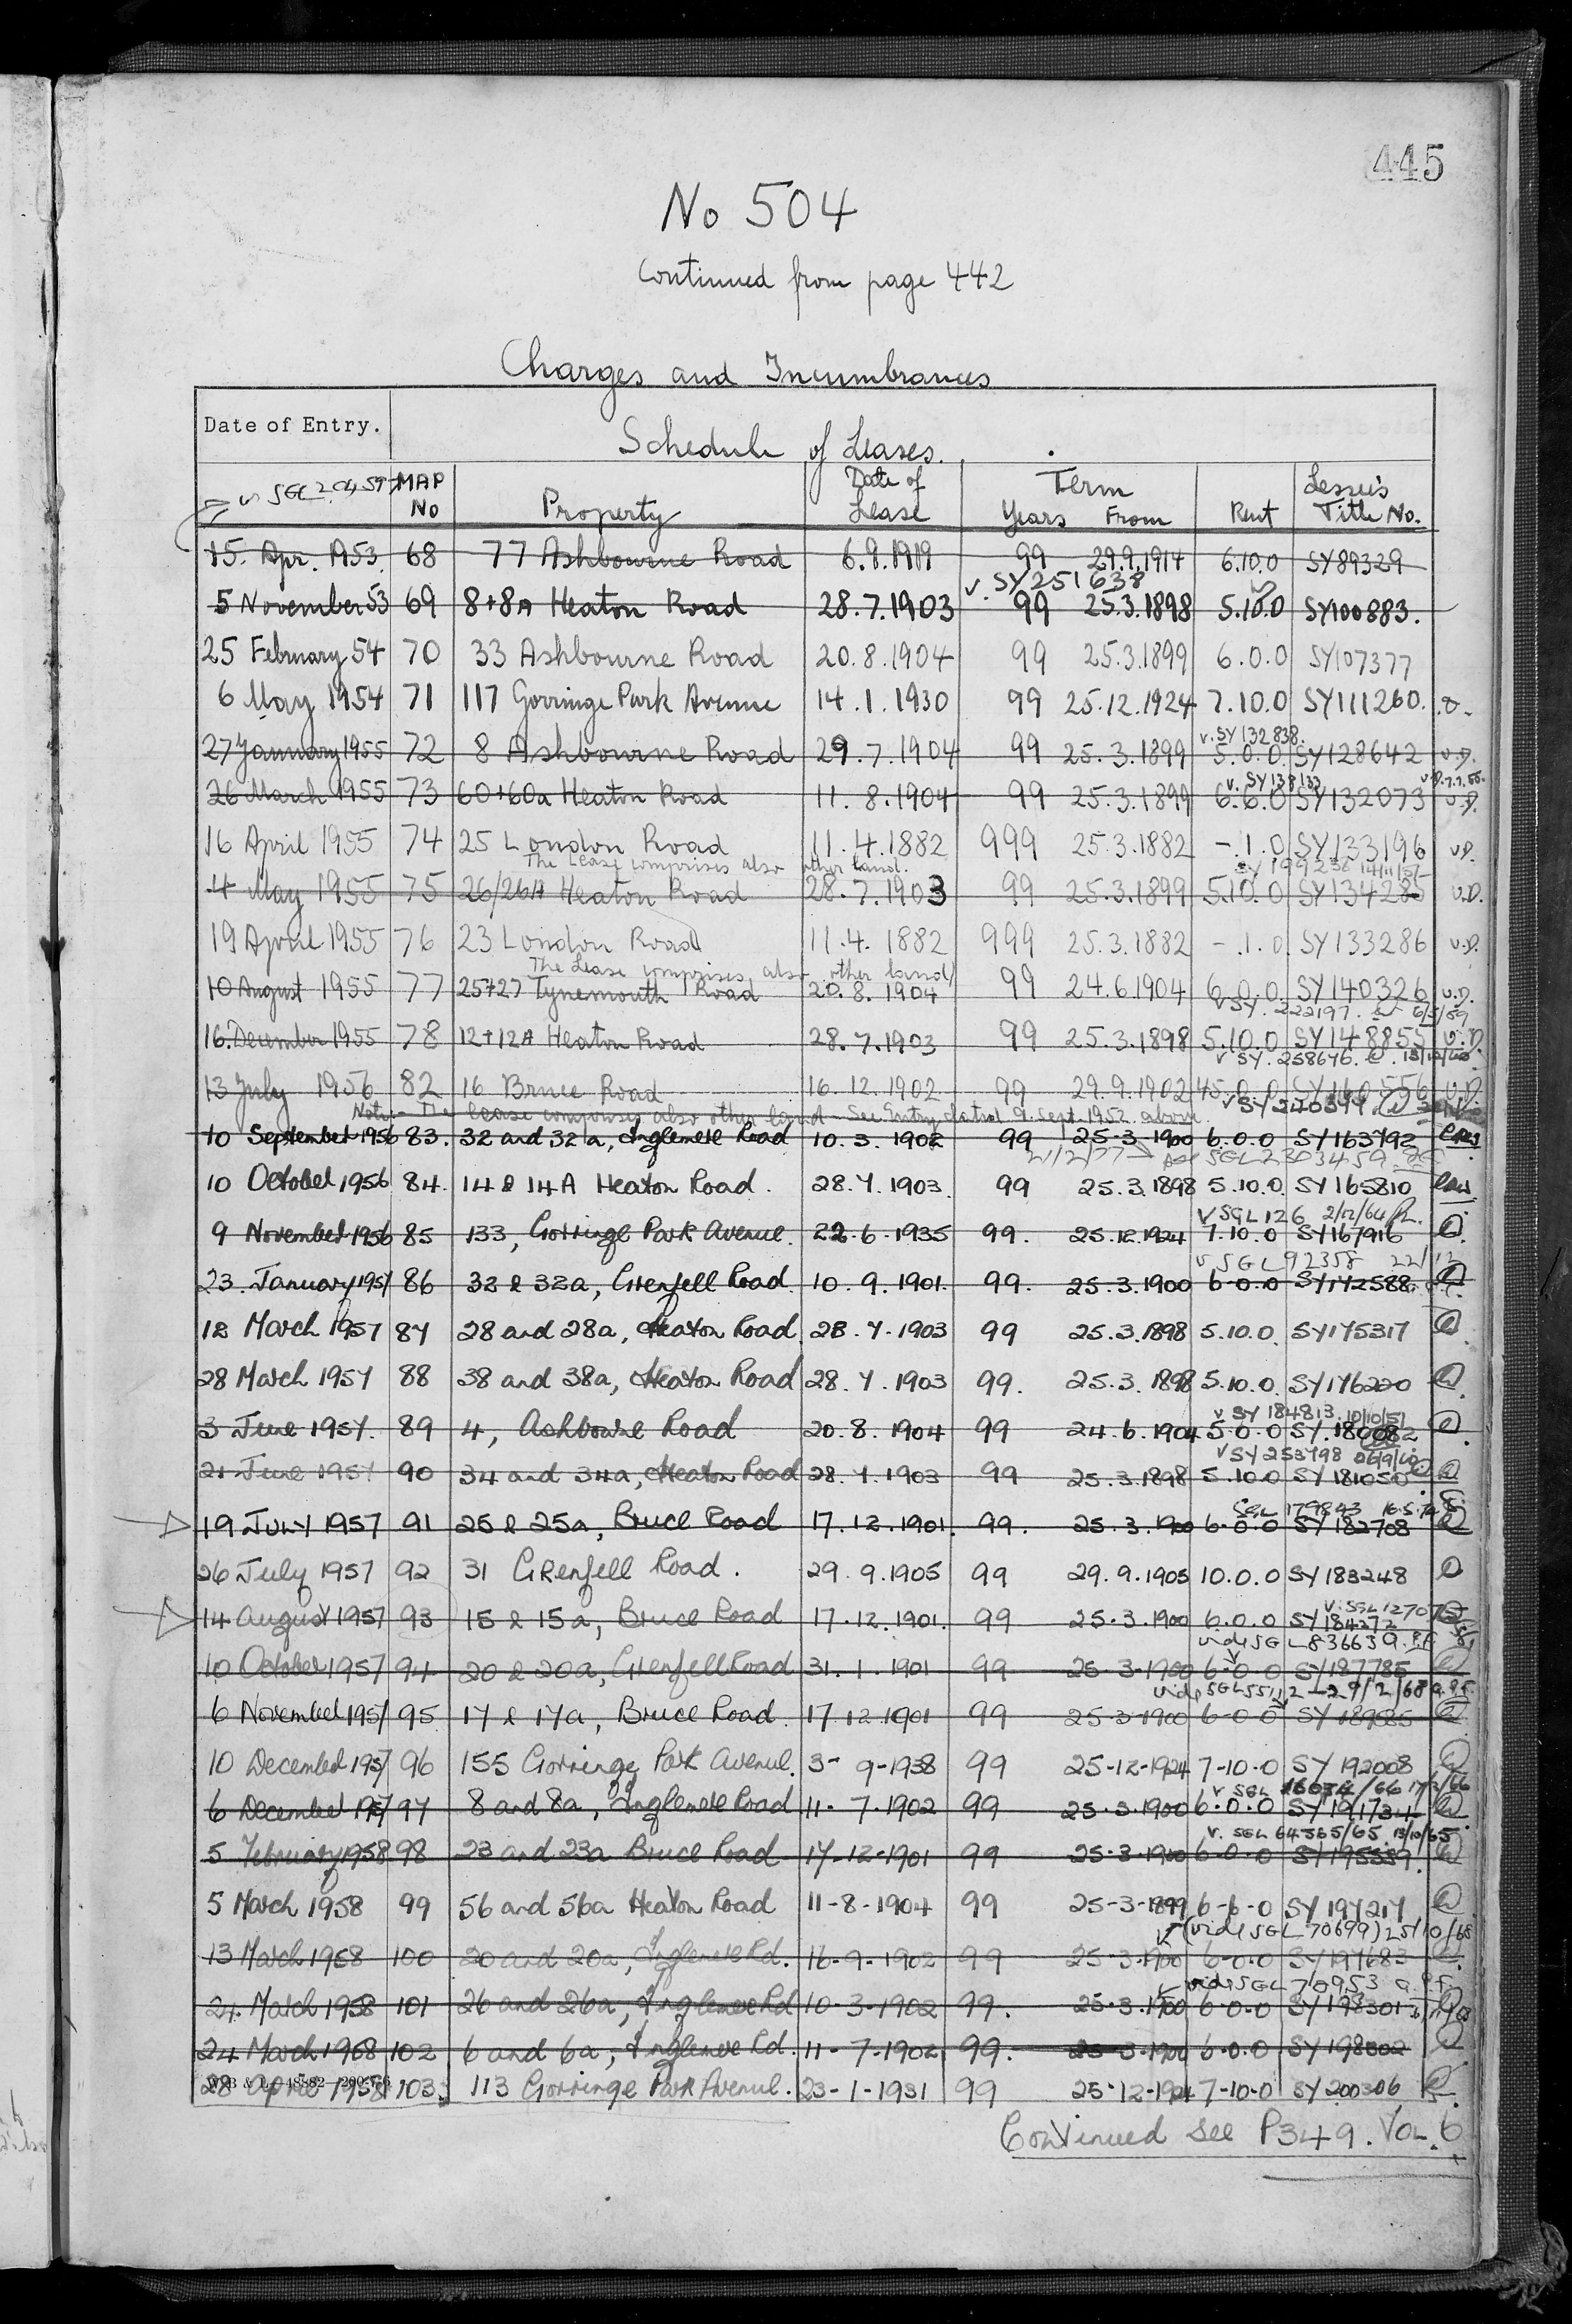 445
No 504
Continued from page 442
Charges and Incumbrances
Date of Entry.
Schedule of Leases.
MAP No Property Date of Lease Term Years From Rent Lessee's Title No.
15. Apr. 1953. 68 77 Ashbourne Road 6.9.1919 99 29.9.1914 6.10.0 SY89329
v. SY251638
5 November 53 69 8+8A Heaton Road 28.7.1903 99 25.3.1898 5.10.0 SY100883.
25 February 54 70 33 Ashbourne Road 20.8.1904 99 25.3.1899 6.0.0 SY107377
6 May 1954 71 117 Gorringe Park Avenue 14.1.1930 99 25.12.1924 7.10.0 SY111260.
v. SY132838.
27 January 1955 72 8 Ashbourne Road 29.7.1904 99 25.3.1899 5.0.0 SY128642 v.D.
v. SY138133
26 March 1955 73 60+60a Heaton Road 11.8.1904 99 25.3.1899 6.6.0 SY132073 v.D.
16 April 1955 74 25 London Road 11.4.1882 999 25.3.1882 -.1.0 SY133196 v.D.
The Lease comprises also other land.
4 May 1955 75 26/26A Heaton Road 28.7.1903 99 25.3.1899 5.10.0 SY134285 v.D.
19 April 1955 76 23 London Road 11.4.1882 999 25.3.1882 -.1.0 SY133286 v.D.
The Lease comprises also other land
10 August 1955 77 25+27 Tynemouth Road 20.8.1904 99 24.6.1904 6.0.0 SY140326 v.D.
v SY.222197. 6/5/59
16. December 1955 78 12+12A Heaton Road 28.7.1903 99 25.3.1898 5.10.0 SY148855 v.D.
v SY.258676.
13 July 1956 82 16 Bruce Road 16.12.1902 99 29.9.1902 45.0.0 SY160556 v.D.
Note:- The lease comprises also other land - See Entry dated 9. Sept. 1952 above
10 September 1956 83. 32 and 32a, Inglemere Road 10.3.1902 99 25.3.1900 6.0.0 SY163792
21/2/77 SGL 2303459
10 October 1956 84. 14 & 14A Heaton Road. 28.7.1903. 99 25.3.1898 5.10.0. SY165810
v SGL 126 2/12/64
9 November 1956 85 133, Gorringe Park Avenue. 22.6.1935 99. 25.12.1924 7.10.0 SY167916
v. SGL 92358
23. January 1957 86 32 & 32a, Grenfell Road. 10.9.1901. 99. 25.3.1900 6-0-0 SY172588.
12 March 1957 87 28 and 28a, Heaton Road. 28.7.1903 99 25.3.1898 5.10.0. SY175317
28 March 1957 88 38 and 38a, Heaton Road 28.7.1903 99. 25.3.1898 5.10.0. SY176220
v SY 184813. 10/10/57
3 June 1957. 89 4, Ashbourne Road 20.8.1904 99 24.6.1904 5.0.0 SY.180082
v SY 253798
21 June 1957 90 34 and 34a, Heaton Road 28.7.1903 99 25.3.1898 5.10.0 SY 181050
SGL 179843 16.5.74
19 JULY 1957 91 25 & 25a, Bruce Road 17.12.1901. 99. 25.3.1900 6.0.0 SY 182708
26 July 1957 92 31 Grenfell Road. 29.9.1905 99 29.9.1905 10.0.0 SY 183248
14 August 1957 93 15 & 15a, Bruce Road 17.12.1901. 99 25.3.1900 6.0.0 SY 184272
vide SGL 836639
10 October 1957 94 20 & 20a, Grenfell Road 31.1.1901 99 25-3-1900 6-0-0 SY187785
6 November 1957 95 17 & 17a, Bruce Road. 17.12.1901 99 25-3-1900 6-0-0 SY 189085
10 December 1957 96 155 Gorringe Park Avenue. 3-9-1938 99 25-12-1924 7-10-0 SY 192008
6 December 1957 97 8 and 8a, Inglemere Road 11-7.1902 99 25.3.1900 6.0.0 SY 191734
v. SGL 64565/65. 13/10/65
5 February 1958 98 23 and 23a Bruce Road 17-12-1901 99 25-3-1900 6-0-0 SY195559.
5 March 1958 99 56 and 56a Heaton Road 11-8-1904 99 25-3-1899 6-6-0 SY 197217
(vide SGL 70699) 25/10/68
13 March 1958 100 20 and 20a, Inglemere Rd. 16-9-1902 99 25-3-1900 6-0-0 SY197683
vide SGL 70953
24. March 1958 101 26 and 26a, Inglemere Rd 10-3-1902 99. 25.3.1900 6-0-0 SY 198301
24 March 1958 102 6 and 6a, Inglemere Rd. 11-7-1902 99. 25-3-1900 6-0-0 SY 198302
28 April 1958 103. 113 Gorringe Park Avenue. 23-1-1931 99 25-12-1924 7-10-0 SY 200306
Continued see P349. Vol. 6